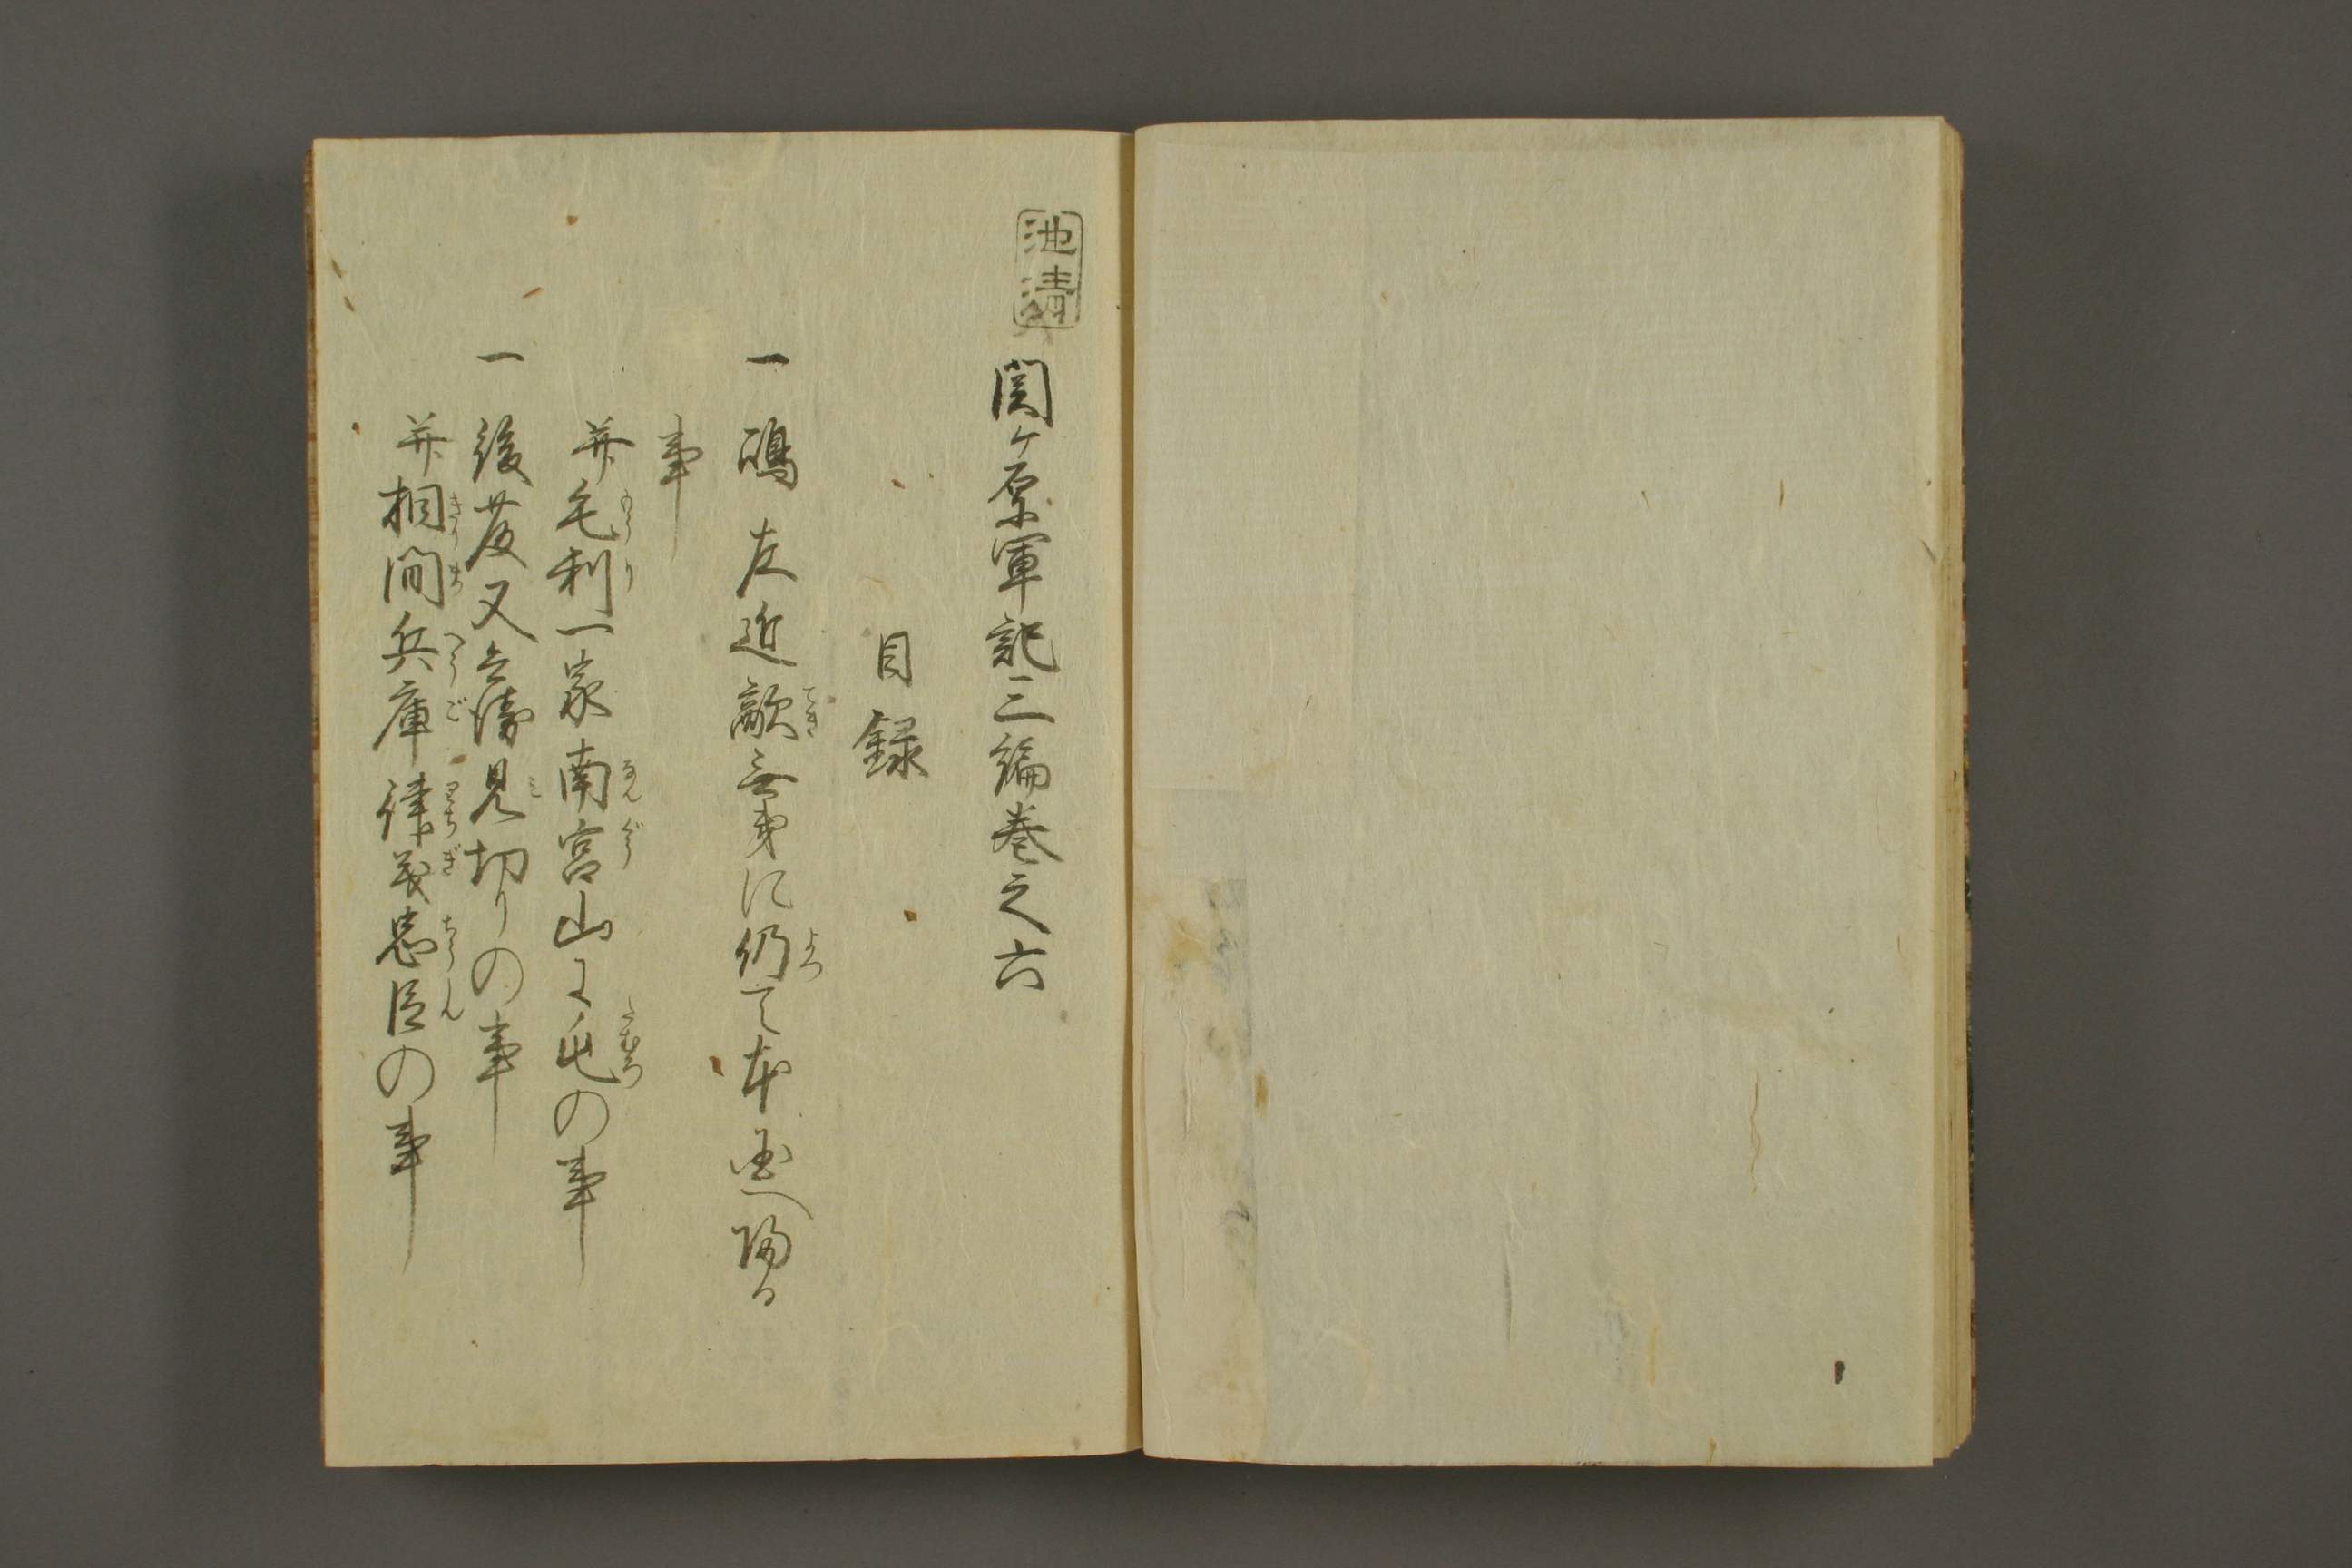 池清
関ヶ原軍記三編巻之六
目録
一嶋左近敵無事に仍て本国へ帰る
事
并毛利一家南宮山に屯の事
一後藤又兵衛見切りの事
并相間兵庫律義忠臣の事